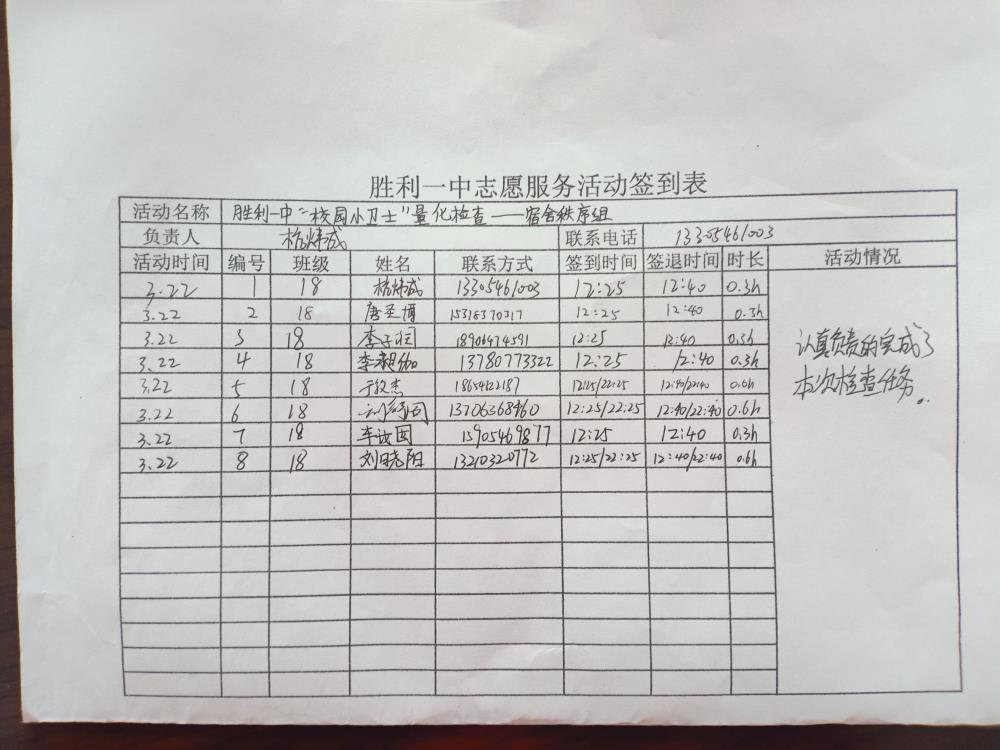 胜利一中志愿服务活动签到表
活动名称 胜利一中“校园小卫士”量化检查——宿舍秩序组
负责人 杭炜成 联系电话 13305461003
活动时间 编号 班级 姓名 联系方式 签到时间 签退时间 时长 活动情况
3.22 1 18 杭炜成 13305461003 12:25 12:40 0.3h
3.22 2 18 唐圣博 15316370317 12:25 12:40 0.3h
3.22 3 18 李子 18906474591 12:25 12:40 0.3h
3.22 4 18 李昶 13780773322 12:25 12:40 0.3h
3.22 5 18 于 杰 1865422187 12:25/22:25 12:40/22:40 0.6h
3.22 6 18 13706368460 12:25/22:25 12:40/22:40 0.6h
3.22 7 18 15905469877 12:25 12:40 0.3h
3.22 8 18 刘晓阳 13210320772 12:25/22:25 12:40/22:40 0.6h
认真负责的完成了
本次检查任务..